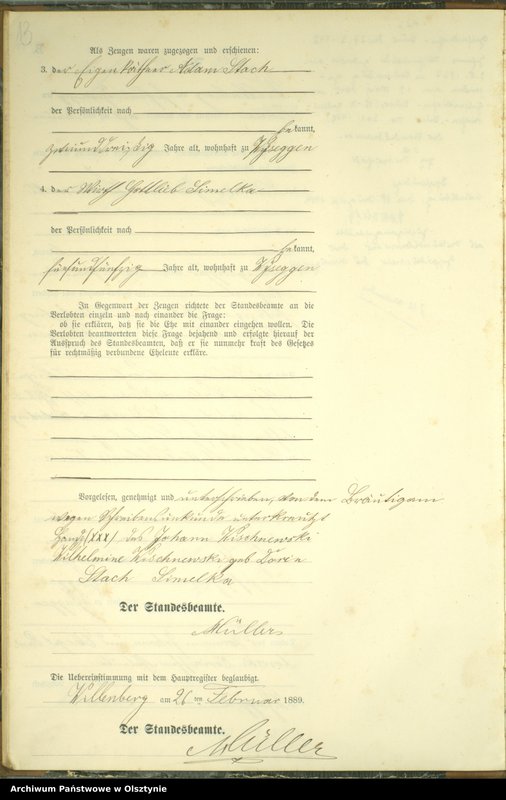 13
Als Zeugen waren zugezogen und erschienen:
3. der Eigenkäthner Adam Stach
der Persönlichkeit nach
bekannt,
zweiunddreißig Jahre alt, wohnhaft zu
4. der Wirth Gottlieb Simelka
der Persönlichkeit nach
bekannt,
fünfundfünfzig Jahre alt, wohnhaft zu
In Gegenwart der Zeugen richtete der Standesbeamte an die
Verlobten einzeln und nach einander die Frage:
ob sie erklären, daß sie die Ehe mit einander eingehen wollen. Die
Verlobten beantworteten diese Frage bejahend und erfolgte hierauf der
Ausspruch des Standesbeamten, daß er sie nunmehr kraft des Gesetzes
für rechtmäßig verbundene Eheleute erkläre.
Vorgelesen, genehmigt und unterschrieben, von dem Bräutigam
wegen Schreibensunkunde unterkreuzt
Handz. (XXX) des Johann Wischnewski
Wilhelmine Wischnewski geb
Stach Simelka
Der Standesbeamte.
Müller
Die Uebereinstimmung mit dem Hauptregister beglaubigt.
Willenberg am 26 ten Februar 1889.
Der Standesbeamte.
Müller
Archiwum Państwowe w Olsztynie